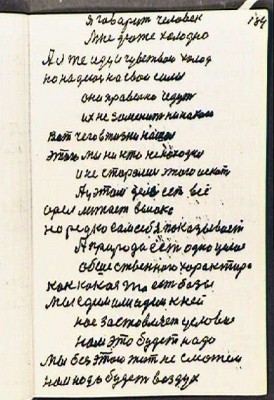 184
Я говарит человек
Мне даже холодно
А я же иду и чувствою холод
но надеюсь на свои силы
они правельно ведут
их не заменит никакои
Вот чего в жизни нашеи
этого мы никто не находил
и не старались этого искать
А у этом деле есть всё
орел литает высоко
но редко сам себя показывает
А природа есть одно целое
общественного характира
как какая то есть база
Мы едим или идем к ней
нас заставляет условие
нам это будет надо
Мы без этого жит не сможем
нам надо будет воздух